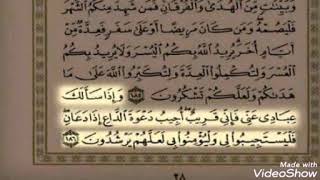 وَبَيِّنَٰتٍ مِّنَ ٱلْهُدَىٰ وَٱلْفُرْقَانِ فَمَن شَهِدَ مِنكُمُ ٱلشَّهْرَ
فَلْيَصُمْهُ وَمَن كَانَ مَرِيضًا أَوْ عَلَىٰ سَفَرٍ فَعِدَّةٌ مِّنْ
أَيَّامٍ أُخَرَ يُرِيدُ ٱللَّهُ بِكُمُ ٱلْيُسْرَ وَلَا يُرِيدُ بِكُمُ
ٱلْعُسْرَ وَلِتُكْمِلُوا۟ ٱلْعِدَّةَ وَلِتُكَبِّرُوا۟ ٱللَّهَ عَلَىٰ مَا
هَدَىٰكُمْ وَلَعَلَّكُمْ تَشْكُرُونَ ١٨٥ وَإِذَا سَأَلَكَ
عِبَادِى عَنِّى فَإِنِّى قَرِيبٌ أُجِيبُ دَعْوَةَ ٱلدَّاعِ إِذَا دَعَانِ
فَلْيَسْتَجِيبُوا۟ لِى وَلْيُؤْمِنُوا۟ بِى لَعَلَّهُمْ يَرْشُدُونَ ١٨٦
٢٨
Made with
VideoShow